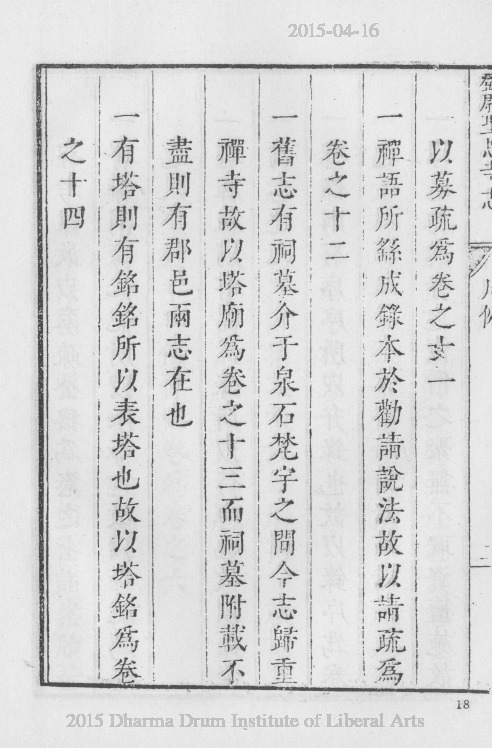 2015-04-16
鄧尉聖恩寺志
凡例
二
以募疏爲卷之十一
一禪語所繇成錄本於勸請說法故以請疏爲
卷之十二
一舊志有祠墓介于泉石梵宇之間今志歸重
禪寺故以塔廟爲卷之十三而祠墓附載不
盡則有郡邑兩志在也
一有塔則有銘銘所以表塔也故以塔銘爲卷
之十四
18
2015 Dharma Drum Institute of Liberal Arts